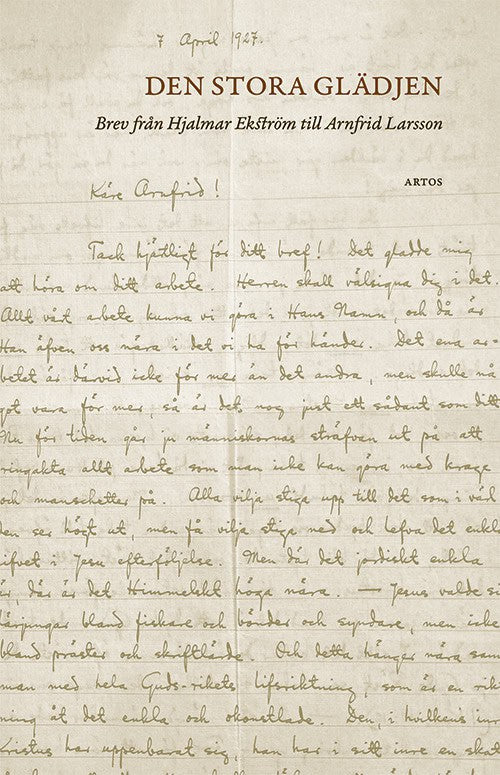 7 April 1927.
DEN STORA GLÄDJEN
Brev från Hjalmar Ekström till Arnfrid Larsson
ARTOS
Käre Arnfrid!
Tack hjätligt för ditt bref! Det gladde mig
att höra om ditt arbete. Herren skall välsigna dig i det.
Allt vårt arbete kunna vi göra i Hans Namn, och då är
Han äfven oss nära i det vi ha för händer. Det ena ar-
betet är därvid icke för mer än det andra, men skulle nå
got vara för mer, så är det nog just ett sådant som ditt
Nu för tiden går ju människornas sträfvan ut på att
ringakta allt arbete som man icke kan göra med krage
och manschetter på. Alla vilja stiga upp till det som i värl
den ser högt ut, men få vilja stiga ned och lefva det enkla
lifvet i Jesu efterföljelse. Men där det jordiskt enkla
är, där är det Himmelskt höga nära. — Jesus valde si
lärjungar bland fiskare och bönder och syndare, men icke
bland präster och skriftlärde. Och detta hänger nära sam
man med hela Guds-rikets lifsriktning, som är en rik
ning åt det enkla och okonstlade. Den, i hvilkens inr
Kristus har uppenbarat sig, han har i sitt inre en skat